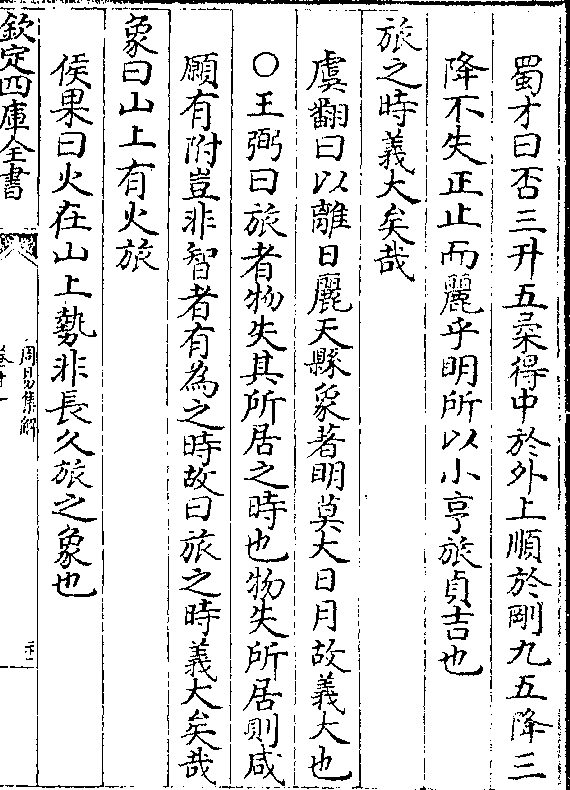 蜀才曰否三升五柔得中於外上順於剛九五降三
降不失正止而麗乎明所以小亨旅貞吉也
旅之時義大矣哉
虞翻曰以離日麗天縣象著明莫大日月故義大也
○王弼曰旅者物失其所居之時也物失所居則咸
願有附豈非智者有為之時故曰旅之時義大矣哉
象曰山上有火旅
侯果曰火在山上勢非長久旅之象也
欽定四庫全書
周易集解